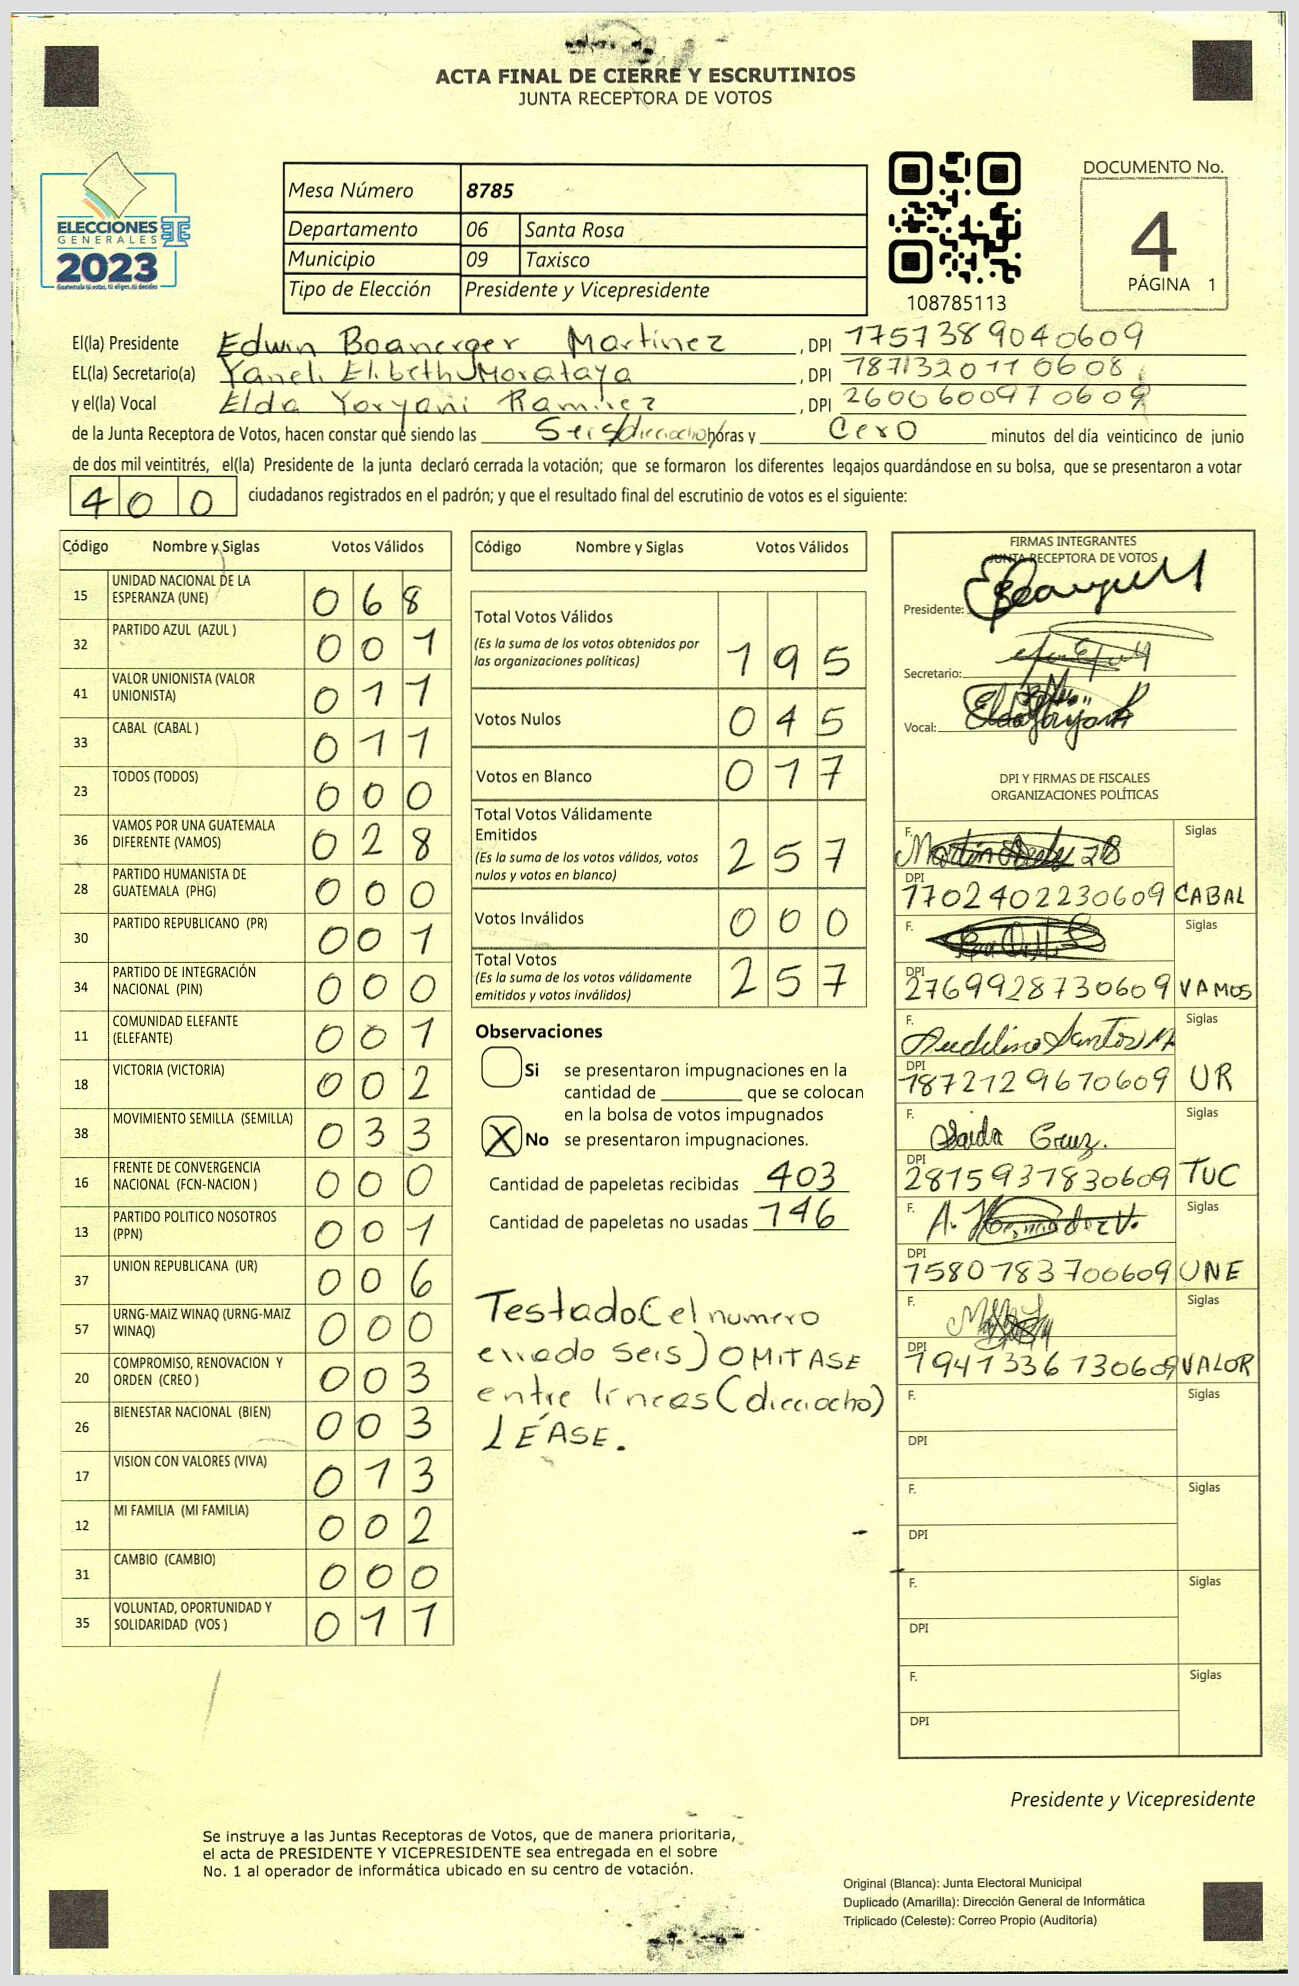 ACTA FINAL DE CIERRE Y ESCRUTINIOS
JUNTA RECEPTORA DE VOTOS
ELECCIONES
GENERALES
2023
Guatemala tú votas, tú eliges, tú decides
Mesa Número 8785
Departamento 06 Santa Rosa
Municipio 09 Taxisco
Tipo de Elección Presidente y Vicepresidente
108785113
DOCUMENTO No.
4
PÁGINA 1
El(la) Presidente Edwin Boanerger Martinez, DPI 1757389040609
EL(la) Secretario(a) Yaneli Elibeth Morataya, DPI 1871320110608
y el(la) Vocal Elda Yoryani Ramirez, DPI 2600600970609
de la Junta Receptora de Votos, hacen constar que siendo las Seis/dieciocho/horas y Cero minutos del día veinticinco de junio
de dos mil veintitrés, el(la) Presidente de la junta declaró cerrada la votación; que se formaron los diferentes legajos guardándose en su bolsa, que se presentaron a votar
400 ciudadanos registrados en el padrón; y que el resultado final del escrutinio de votos es el siguiente:
Código Nombre y Siglas Votos Válidos
15 UNIDAD NACIONAL DE LA ESPERANZA (UNE) 068
32 PARTIDO AZUL (AZUL ) 001
41 VALOR UNIONISTA (VALOR UNIONISTA) 011
33 CABAL (CABAL ) 011
23 TODOS (TODOS) 000
36 VAMOS POR UNA GUATEMALA DIFERENTE (VAMOS) 028
28 PARTIDO HUMANISTA DE GUATEMALA (PHG) 000
30 PARTIDO REPUBLICANO (PR) 001
34 PARTIDO DE INTEGRACIÓN NACIONAL (PIN) 000
11 COMUNIDAD ELEFANTE (ELEFANTE) 001
18 VICTORIA (VICTORIA) 002
38 MOVIMIENTO SEMILLA (SEMILLA) 033
16 FRENTE DE CONVERGENCIA NACIONAL (FCN-NACION ) 000
13 PARTIDO POLITICO NOSOTROS (PPN) 001
37 UNION REPUBLICANA (UR) 006
57 URNG-MAIZ WINAQ (URNG-MAIZ WINAQ) 000
20 COMPROMISO, RENOVACION Y ORDEN (CREO ) 003
26 BIENESTAR NACIONAL (BIEN) 003
17 VISION CON VALORES (VIVA) 013
12 MI FAMILIA (MI FAMILIA) 002
31 CAMBIO (CAMBIO) 000
35 VOLUNTAD, OPORTUNIDAD Y SOLIDARIDAD (VOS ) 011
Código Nombre y Siglas Votos Válidos
Total Votos Válidos
(Es la suma de los votos obtenidos por
las organizaciones políticas) 195
Votos Nulos 045
Votos en Blanco 017
Total Votos Válidamente
Emitidos
(Es la suma de los votos válidos, votos
nulos y votos en blanco) 257
Votos Inválidos 000
Total Votos
(Es la suma de los votos válidamente
emitidos y votos inválidos) 257
Observaciones
Si se presentaron impugnaciones en la
cantidad de ________ que se colocan
en la bolsa de votos impugnados
X No se presentaron impugnaciones.
Cantidad de papeletas recibidas 403
Cantidad de papeletas no usadas 146
Testado (el numero
errado seis) OMITASE
entre líneas (dieciocho)
LÉASE.
FIRMAS INTEGRANTES
JUNTA RECEPTORA DE VOTOS
Presidente:
Secretario:
Vocal:
DPI Y FIRMAS DE FISCALES
ORGANIZACIONES POLÍTICAS
F. Siglas
DPI 1702402230609 CABAL
F. Siglas
DPI 2769928730609 VAMOS
F. Audelino Santos M. Siglas
DPI 1872129670609 UR
F. Saida Cruz. Siglas
DPI 2815937830609 TUC
F. A. Hernandez V. Siglas
DPI 1580783700609 UNE
F. Siglas
DPI 1941336130609 VALOR
F. Siglas
DPI
F. Siglas
DPI
F. Siglas
DPI
F. Siglas
DPI
Presidente y Vicepresidente
Se instruye a las Juntas Receptoras de Votos, que de manera prioritaria,
el acta de PRESIDENTE Y VICEPRESIDENTE sea entregada en el sobre
No. 1 al operador de informática ubicado en su centro de votación.
Original (Blanca): Junta Electoral Municipal
Duplicado (Amarilla): Dirección General de Informática
Triplicado (Celeste): Correo Propio (Auditoría)